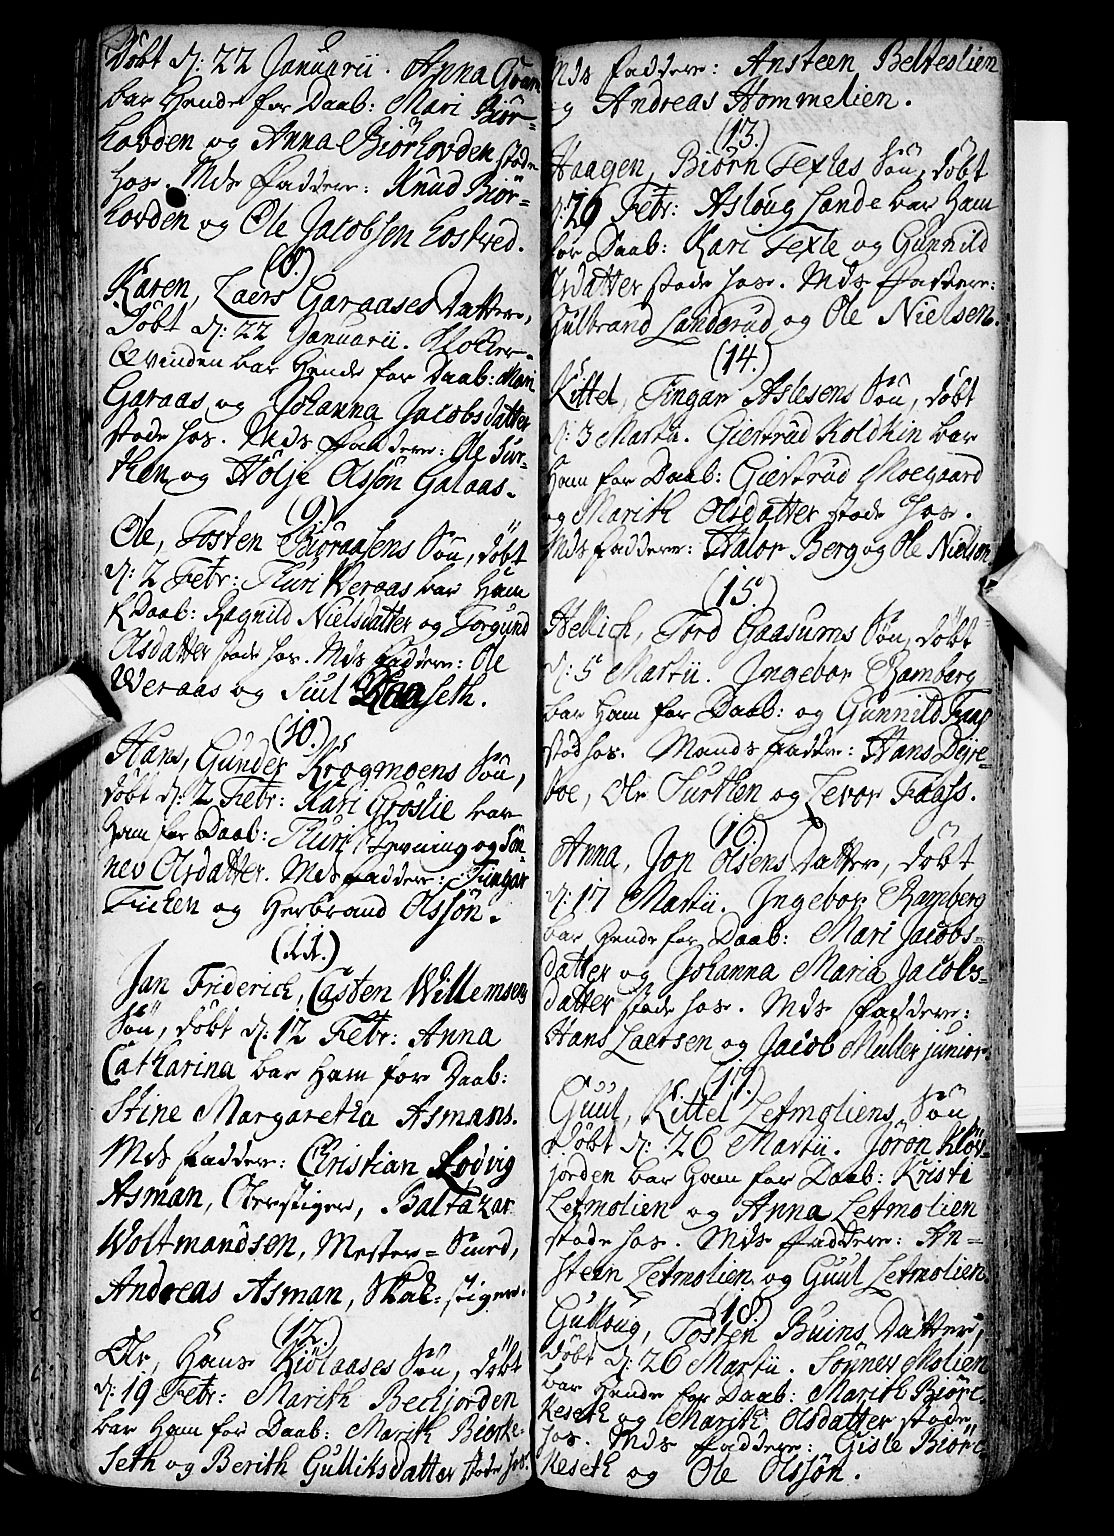 Döbt d: 22 Januarii. Anna Gvam
bar Hende for Daab: Mari Biör-
hovden og Anna Biörhovden stode
hos. Mds faddere: Knud Biör-
hovden og Ole Jacobsen Lostved.
(8.)
Karen, Laers Garaases Datter,
Döbt d: 22 Januarii. Klocker-
Qvinden bar Hende for Daab: Mari
Garaas og Johanna Jacobsdatter
stode hos. Mds faddere: Ole Tur-
tken og Hölje Olssön Galaas.
(9)
Ole, Tosten Biöraasens Sön, döbt
d: 2 Febr: Thuri Weraas bar Ham
t. Daab: Ragnild Nielsdatter og Torgund
Olsdatter stode hos. Mds faddere: Ole
Weraas og Siul Raaseth.
(10.)
Hans, Gunder Krogmoens Sön,
döbt d: 2 Febr: Kari Gröslie bar
Ham for Daab: Thuri Levning og Sön-
nev Olsdatter. Mds faddere: Fingar
Ticken og Herbrand Olssön.
(11.)
Jan Friderich, Casten Willemsens
Sön, döbt d: 12 Febr: Anna
Catharina bar Ham for Daab:
Stine Margaretha Asmans.
Mds faddere: Christian Lodvig
Asman, Oberstiger, Baltazar
Woltmandsen, Mester-Smed,
Andreas Asman, Skak-stiger.
(12.)
Ole, Hans Kiölaases Sön, döbt
d: 19 Febr: Marith Beckjorden
bar Ham for Daab: Marith Biörke-
seth og Berith Gulliksdatter stode hos.
Mds faddere: Ansteen Belteslien
og Andreas Hommelien.
(13.)
Haagen, Biörn Texles Sön, döbt
d: 26 Febr: Asloug Lande bar Ham
for Daab: Kari Texle og Gunnild
Olsdatter stode hos. Mds faddere:
Gulbrand Landerud og Ole Nielsen.
(14.)
Kittel, Fingar Aslesens Sön, döbt
d: 3 Martii. Giertrud Koldkin bar
Ham for Daab: Giertrud Moegaard
og Marith Olsdatter stode hos.
Mds faddere: Halor Berg og Ole Nielsen
(15.)
Hellich, Tord Gaasums Sön, döbt
d: 5 Martii. Ingebor Ramberg
bar Ham for Daab: og Gunnild Faas
stod hos. Mands faddere: Hans Dejre-
boe, Ole Turtken og Levor Faass.
(16)
Anna, Jon Olsens Datter, döbt
d: 17 Martii. Ingebor Ramberg
bar Hende for Daab: Mari Jacobs-
datter og Johanna Maria Jacobs-
datter stode hos. Mds faddere:
Hans Laersen og Jacob Müller junior.
(17.)
Guul, Kittel Letmoliens Sön,
Döbt d: 26 Martii. Jöron Klöv-
jorden bar Ham for Daab: Kristi
Letmolien og Anna Letmolien
stode hos. Mds faddere: An-
steen Letmolien og Guul Letmolien.
(18.)
Gulloug, Tosten Buins Datter,
döbt d: 26 Martii. Sönnev Molien
bar Hende for Daab: Marith Biör-
keseth og Marith Olsdatter stode
hos. Mds faddere: Gisle Biör-
keseth og Ole Olssön.